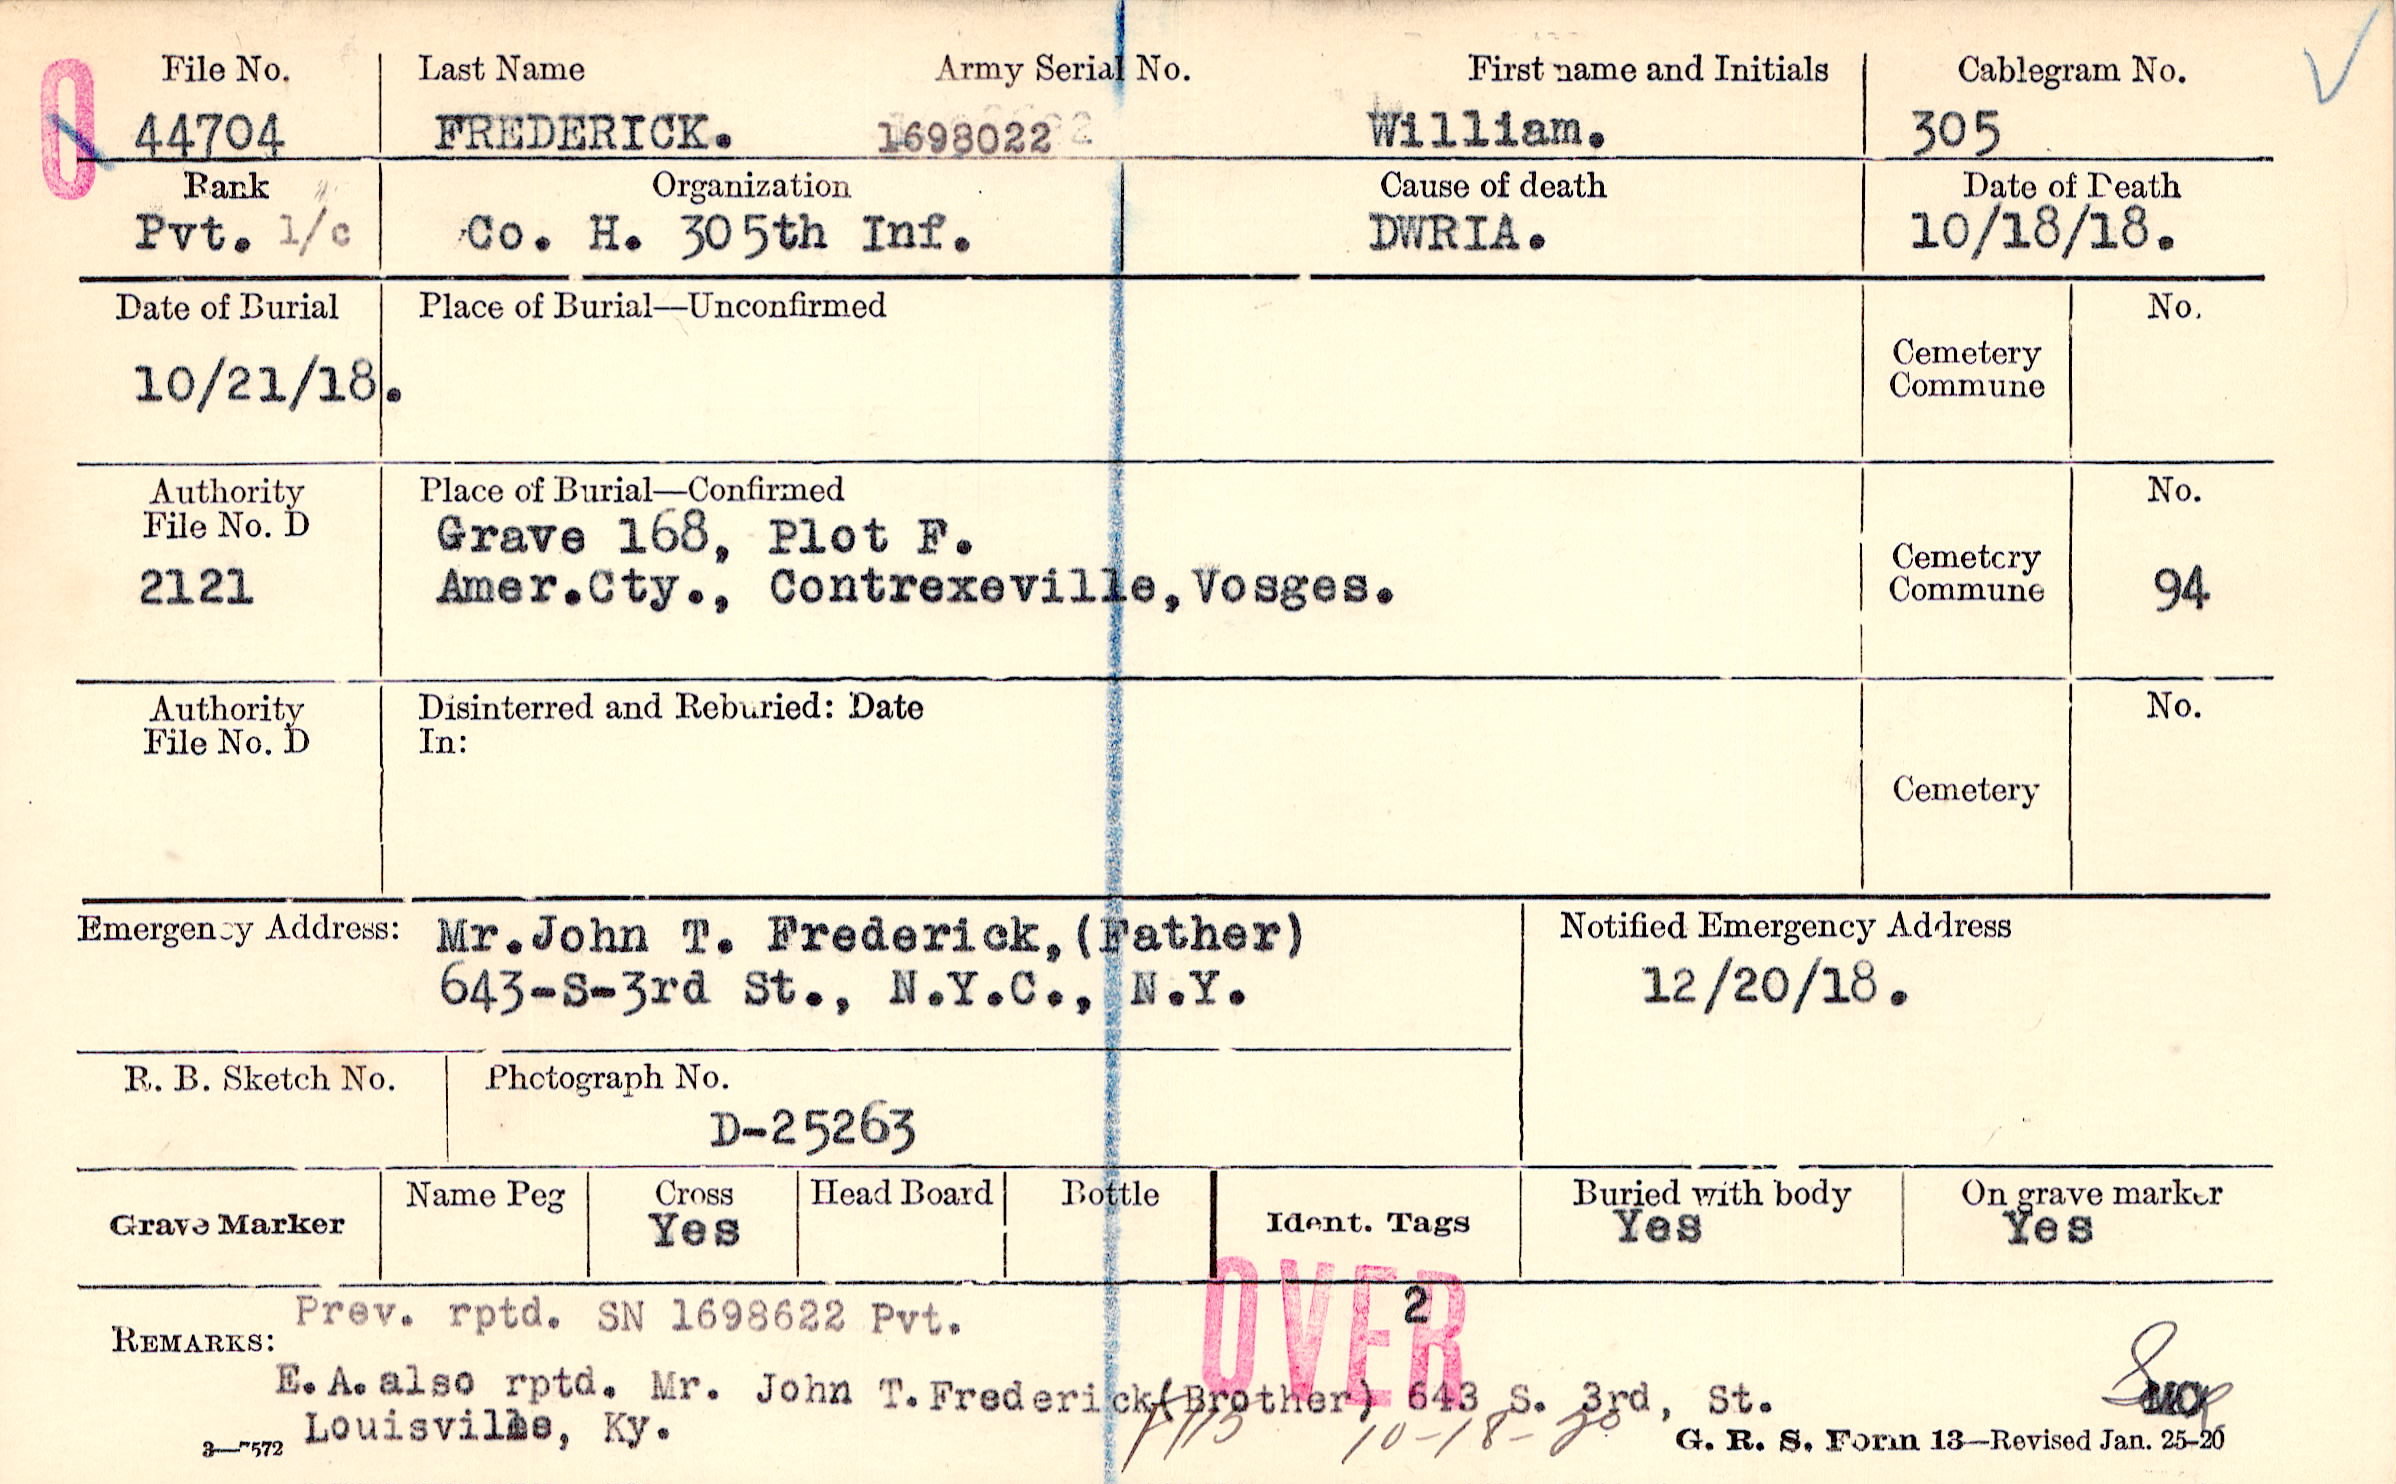 File No. Last Name Army Serial No. First name and Initials Cablegram No.
0 44704 FREDERICK. 1698022 William. 305
Rank Organization Cause of death Date of Death
Pvt. 1/c Co. H. 305th Inf. DWRIA. 10/18/18.
Date of Burial Place of Burial—Unconfirmed No.
Cemetery
Commune
10/21/18.
Authority Place of Burial—Confirmed No.
File No. D Grave 168, Plot F.
Cemetery
2121 Amer.Cty., Contrexeville,Vosges. Commune 94
Authority Disinterred and Reburied: Date No.
File No. D In:
Cemetery
Emergency Address: Mr.John T. Frederick,(Father) Notified Emergency Address
643-S-3rd St., N.Y.C., N.Y. 12/20/18.
R. B. Sketch No. Photograph No.
D-25263
Grave Marker Name Peg Cross Head Board Bottle Ident. Tags Buried with body On grave marker
Yes Yes Yes
OVER 2
Prev. rptd. SN 1698622 Pvt.
REMARKS:
E.A.also rptd. Mr. John T.Frederick(Brother) 643 S. 3rd, St.
Louisville, Ky. 10-18-20
3—7572 G. R. S. Form 13—Revised Jan. 25-20